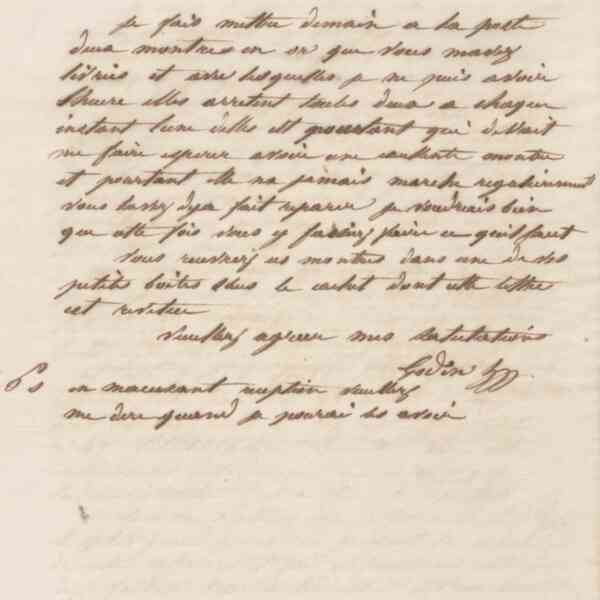 je fais mettre demain a la poste
deux montres en or que vous mavez
livrées et avec lesquelles je ne puis avoir
lheure elles arretent toutes deux a chaque
instant lune delles est pourtant qui devait
me faire esperer avoir une excellente montre
et pourtant elle na jamais marché regulierement
vous lavez deja fait reparer je voudrais bien
que cette fois vous y fassiez faire ce quil faut
vous recevrez ces montres dans une de vos
petites boites sous le cachet dont cette lettre
est revetue
veuillez agreer mes salutations
Godin
Ps en maccusant reception veuillez
me dire quand je pourai les avoir